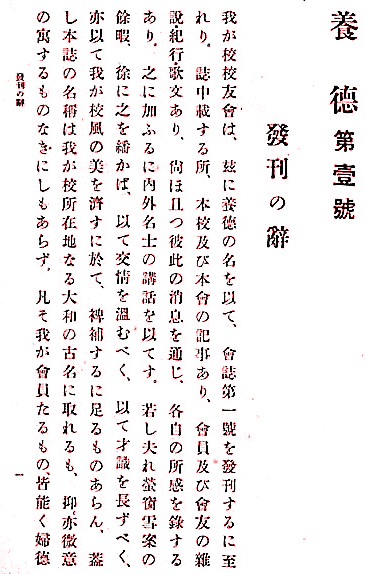 養德第壹號
發刊の辭
我が校校友會は、玆に養德の名を以て、會誌第一號を發刊するに至
れり。誌中載する所、本校及び本會の記事あり、會員及び會友の雜
說・紀行歌文あり、尙ほ且つ彼此の消息を通じ、各自の所感を錄する
あり。之に加ふるに内外名士の講話を以てす。若し夫れ螢窗雪案の
餘暇、徐に之を繙かば、以て交情を溫むべく、以て才識を長ずべく、
亦以て我が校風の美を濟すに於て、裨補するに足るものあらん、蓋
し本誌の名稱は我が校所在地なる大和の古名に取れるも、抑亦微意
の寓するものなきにしもあらず。凡そ我が會員たるもの、皆能く婦德
發刊の辭
一